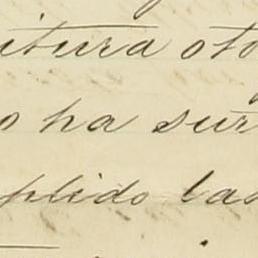 itura oto
o ha sur
plido las